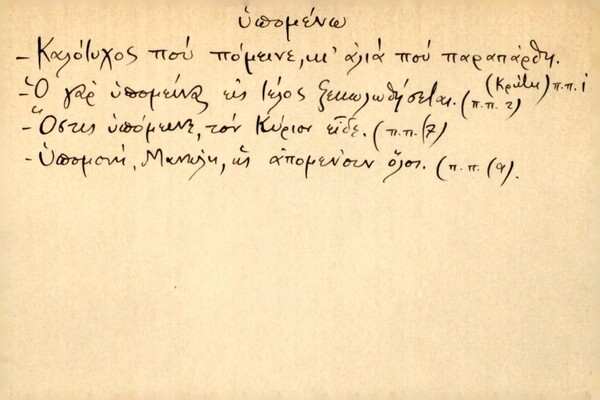 ὑπομένω
- Καλότυχος πού πόμεινε, κι' ἀλιά πού παραπάρθη.
(Κρήτη) π.π. 1
- Ὁ γάρ ὑπομείνας εἰς τέλος ξεκωλωθήσεται. (π.π. 2)
- Ὅστις ὑπόμεινε, τόν Κύριον εἶδε. (π.π. 17)
- Ὑπομονή, Μανώλη, κι ἀπομένουν ὅλοι. (π.π. 19).